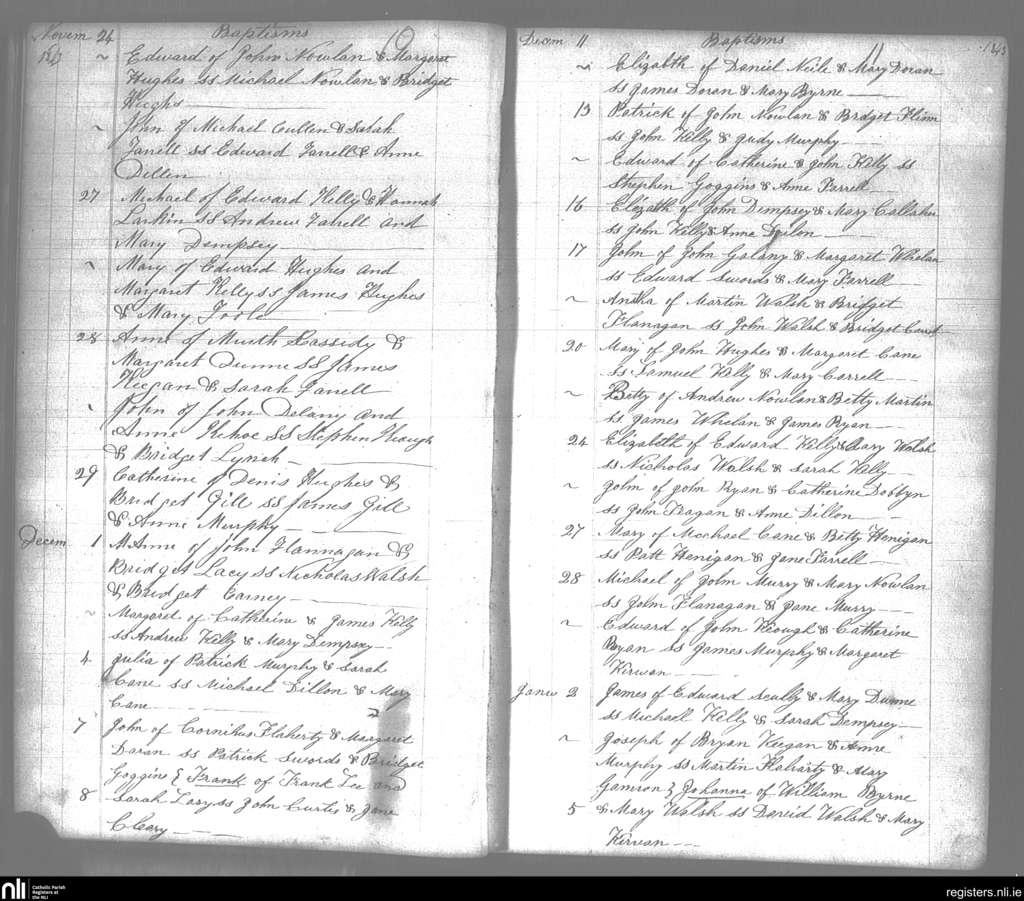 Novem 24 Baptisms 10
~ Edward of John Nowlan & Margaret
Hughes ss Michael Nowlan & Bridget
Hughs
~ John of Michael Cullen & Sarah
Farrell ss Edward Farrell & Anne
Dillon
27 Michael of Edward Kelly & Hannah
Larkin ss Andrew Farrell and
Mary Dempsey
~ Mary of Edward Hughes and
Margaret Kelly ss James Hughes
& Mary Toole
28 Anne of Cassidy &
Margaret Dunne ss James
Keegan & Sarah Farrell
~ John of John Delany and
Anne Kehoe ss Stephen Keough
& Bridget Lynch
29 Catherine of Denis Hughes &
Bridget Gill ss James Gill
& Anne Murphy
Decem 1 MAnne of John Flannagan &
Bridget Lacy ss Nicholas Walsh
& Bridget Carney
~ Margaret of Catherine & James Kelly
ss Andrew Kelly & Mary Dempsey
4 Julia of Patrick Murphy & Sarah
Cane ss Michael Dillon & Mary
Cane
7 John of Cornilius Flaherty & Margaret
Doran ss Patrick Swords & Bridget
Goggins & Frank of Frank Lee and
8 Sarah Lacy ss John Curtis & Jane
Cleary
Decem 11 Baptisms 11
~ Elizabth of Daniel Neile & Mary Doran
ss James Doran & Mary Byrne
13 Patrick of John Nowlan & Bridget Flinn
ss John Kelly & Judy Murphy
~ Edward of Catherine & John Kelly ss
Stephen Goggins & Anne Farrell
16 Elizabth of John Dempsey & Mary Callahan
ss John Kelly & Anne
17 John of John Galany & Margaret Whelan
ss Edward Swords & Mary Farrell
~ of Martin Walsh & Bridget
Flanagan ss John Walsh & Bridget
20 Mary of John Hughes & Margaret Cane
ss Samuel Kelly & Mary Carrell
~ Betty of Andrew Nowlan & Betty Martin
ss James Whelan & James Ryan
24 Elizabetht of Edward Kelly & Mary Walsh
ss Nicholas Walsh & Sarah Kelly
~ John of John Ryan & Catherine Dobbyn
ss John Fragan & Anne Dillon
27 Mary of Michael Cane & Betty Henigan
ss Patt Henigan & Jane Farrell
28 Michael of John Murry & Mary Nowlan
ss John Flanagan & Jane Murry
~ Edward of John Keough & Catherine
Ryan ss James Murphy & Margaret
Kirwan
Janu 2 James of Edward Scully & Mary Dunne
ss Michael Kelly & Sarah Dempsey
~ Joseph of Bryan Keegan & Anne
Murphy ss Martin Flaharty & Mary
Gamron & Johanna of William Byrne
5 & Mary Walsh ss David Walsh & Mary
Kirwan
nli Catholic Parish
Registers at
the NLI
registers.nli.ie